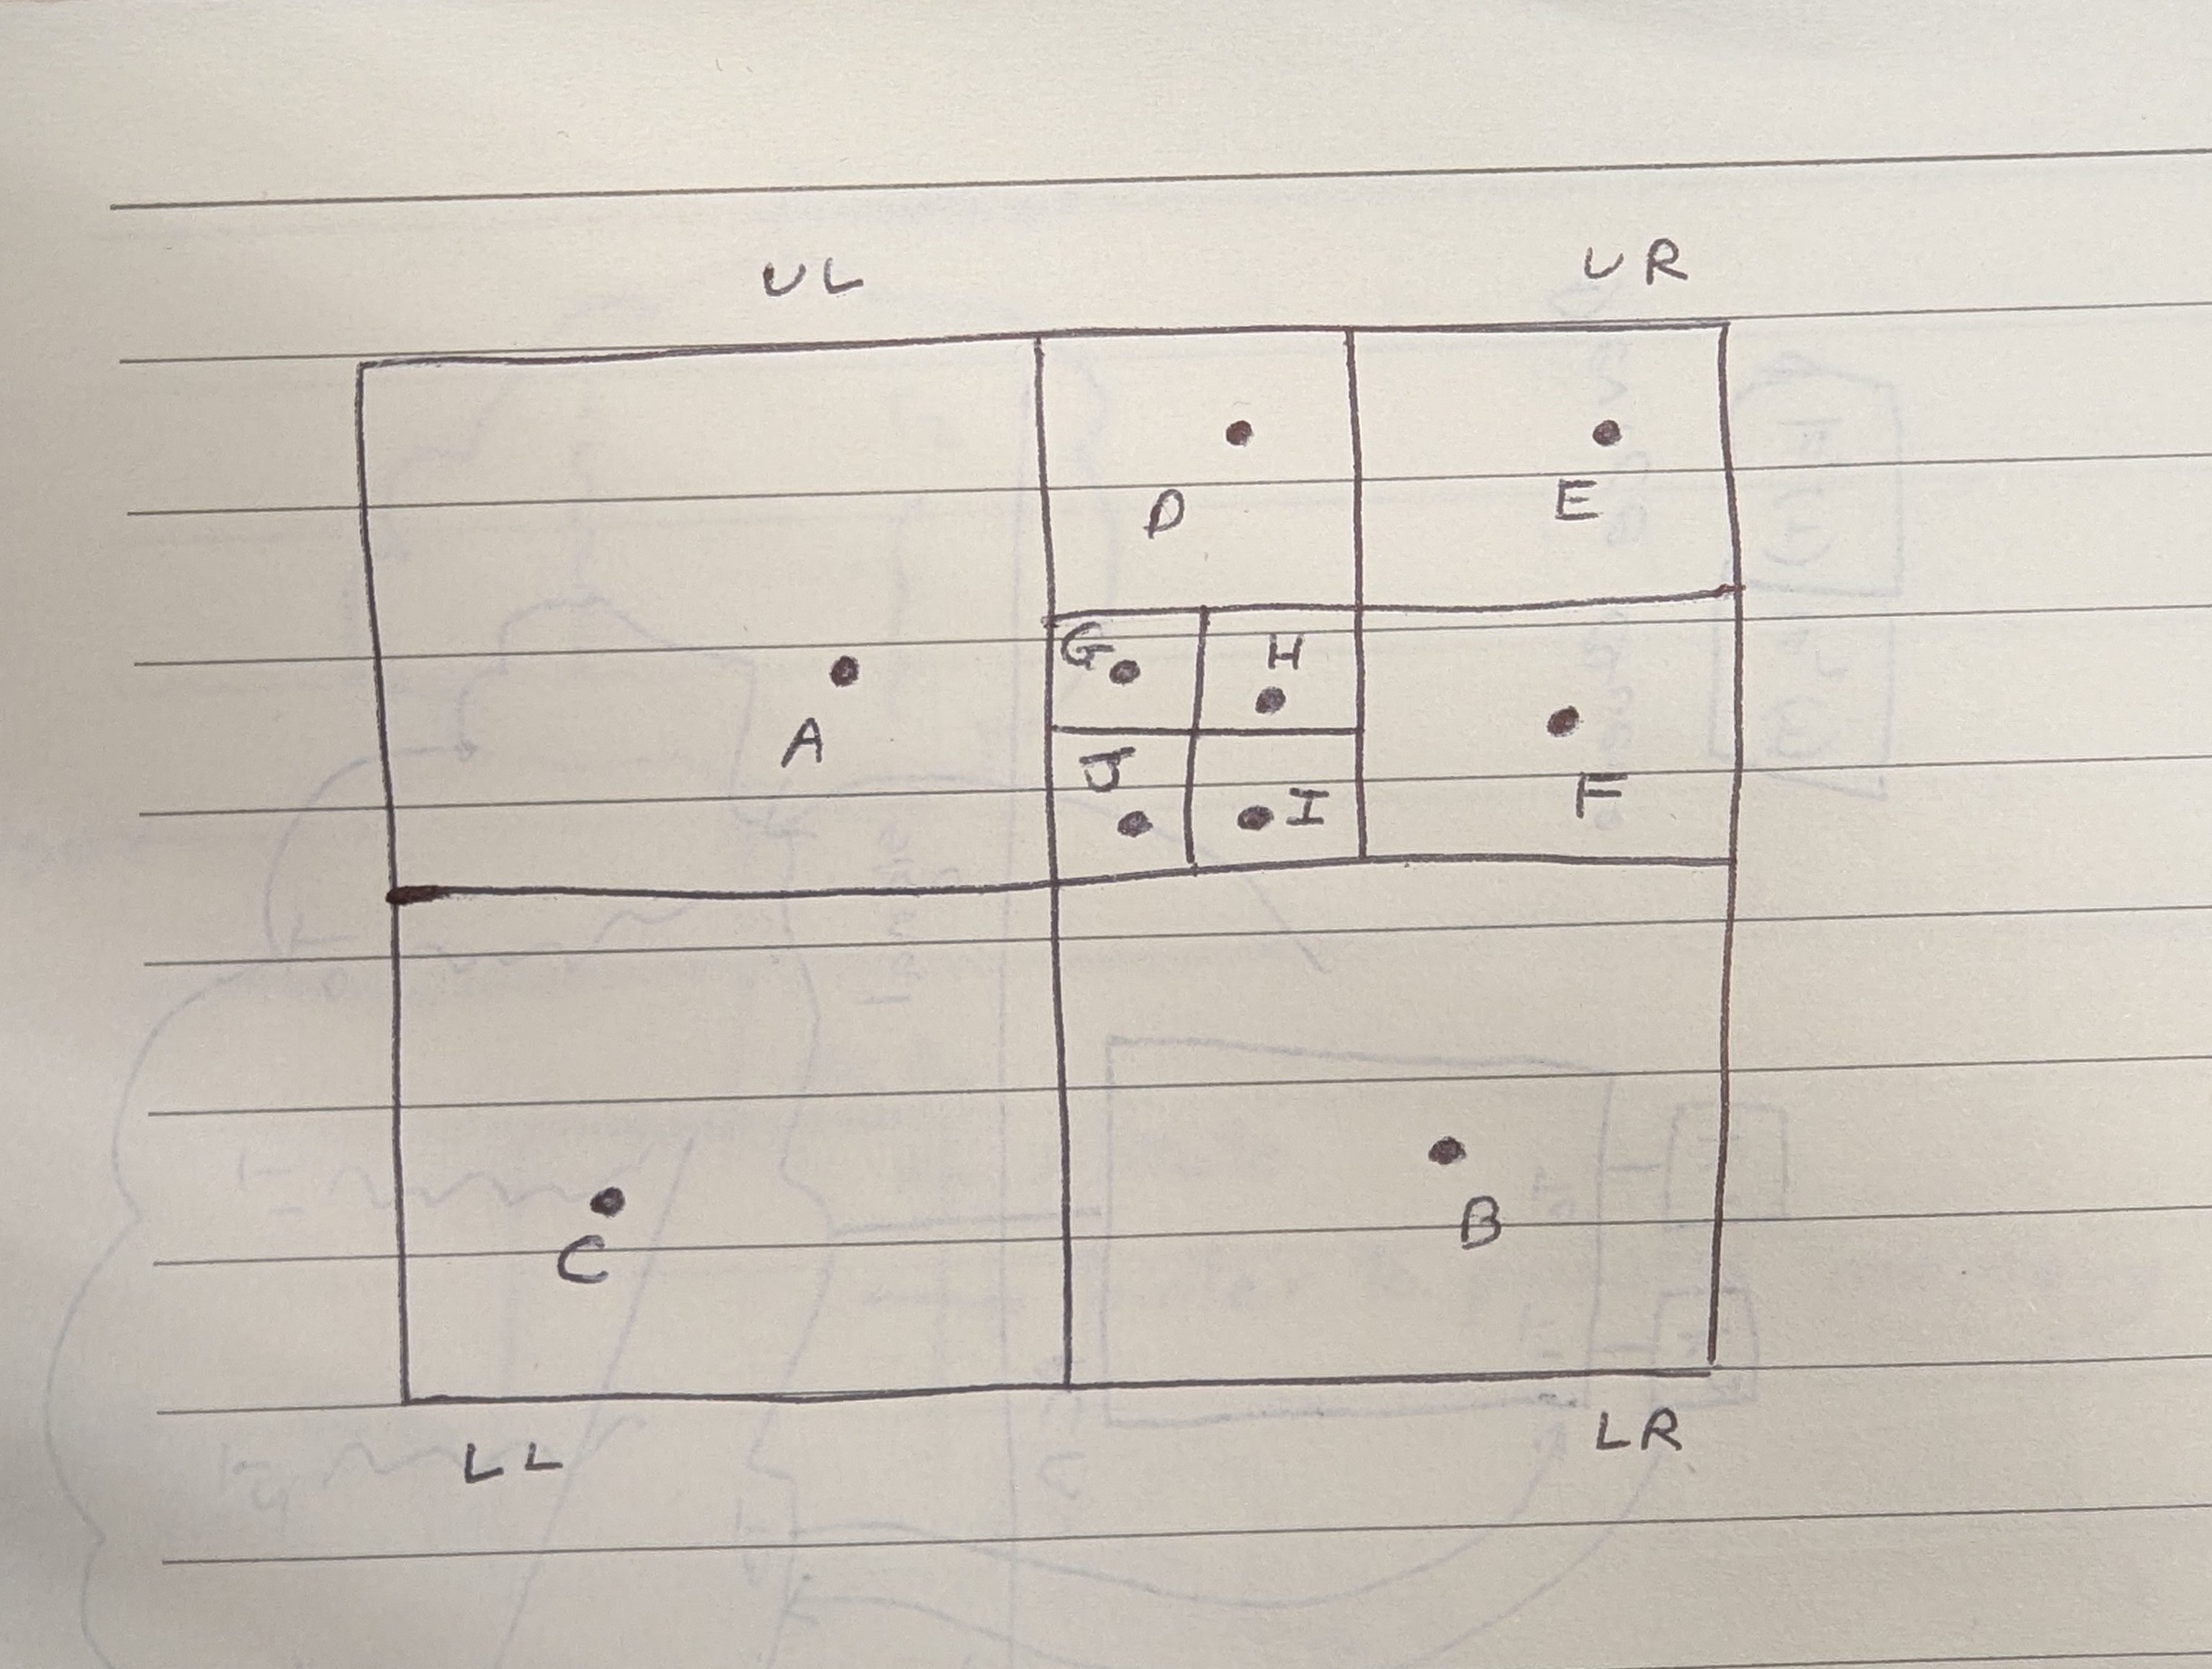 UL UR
D E
G H
A J I F
C B
LL LR